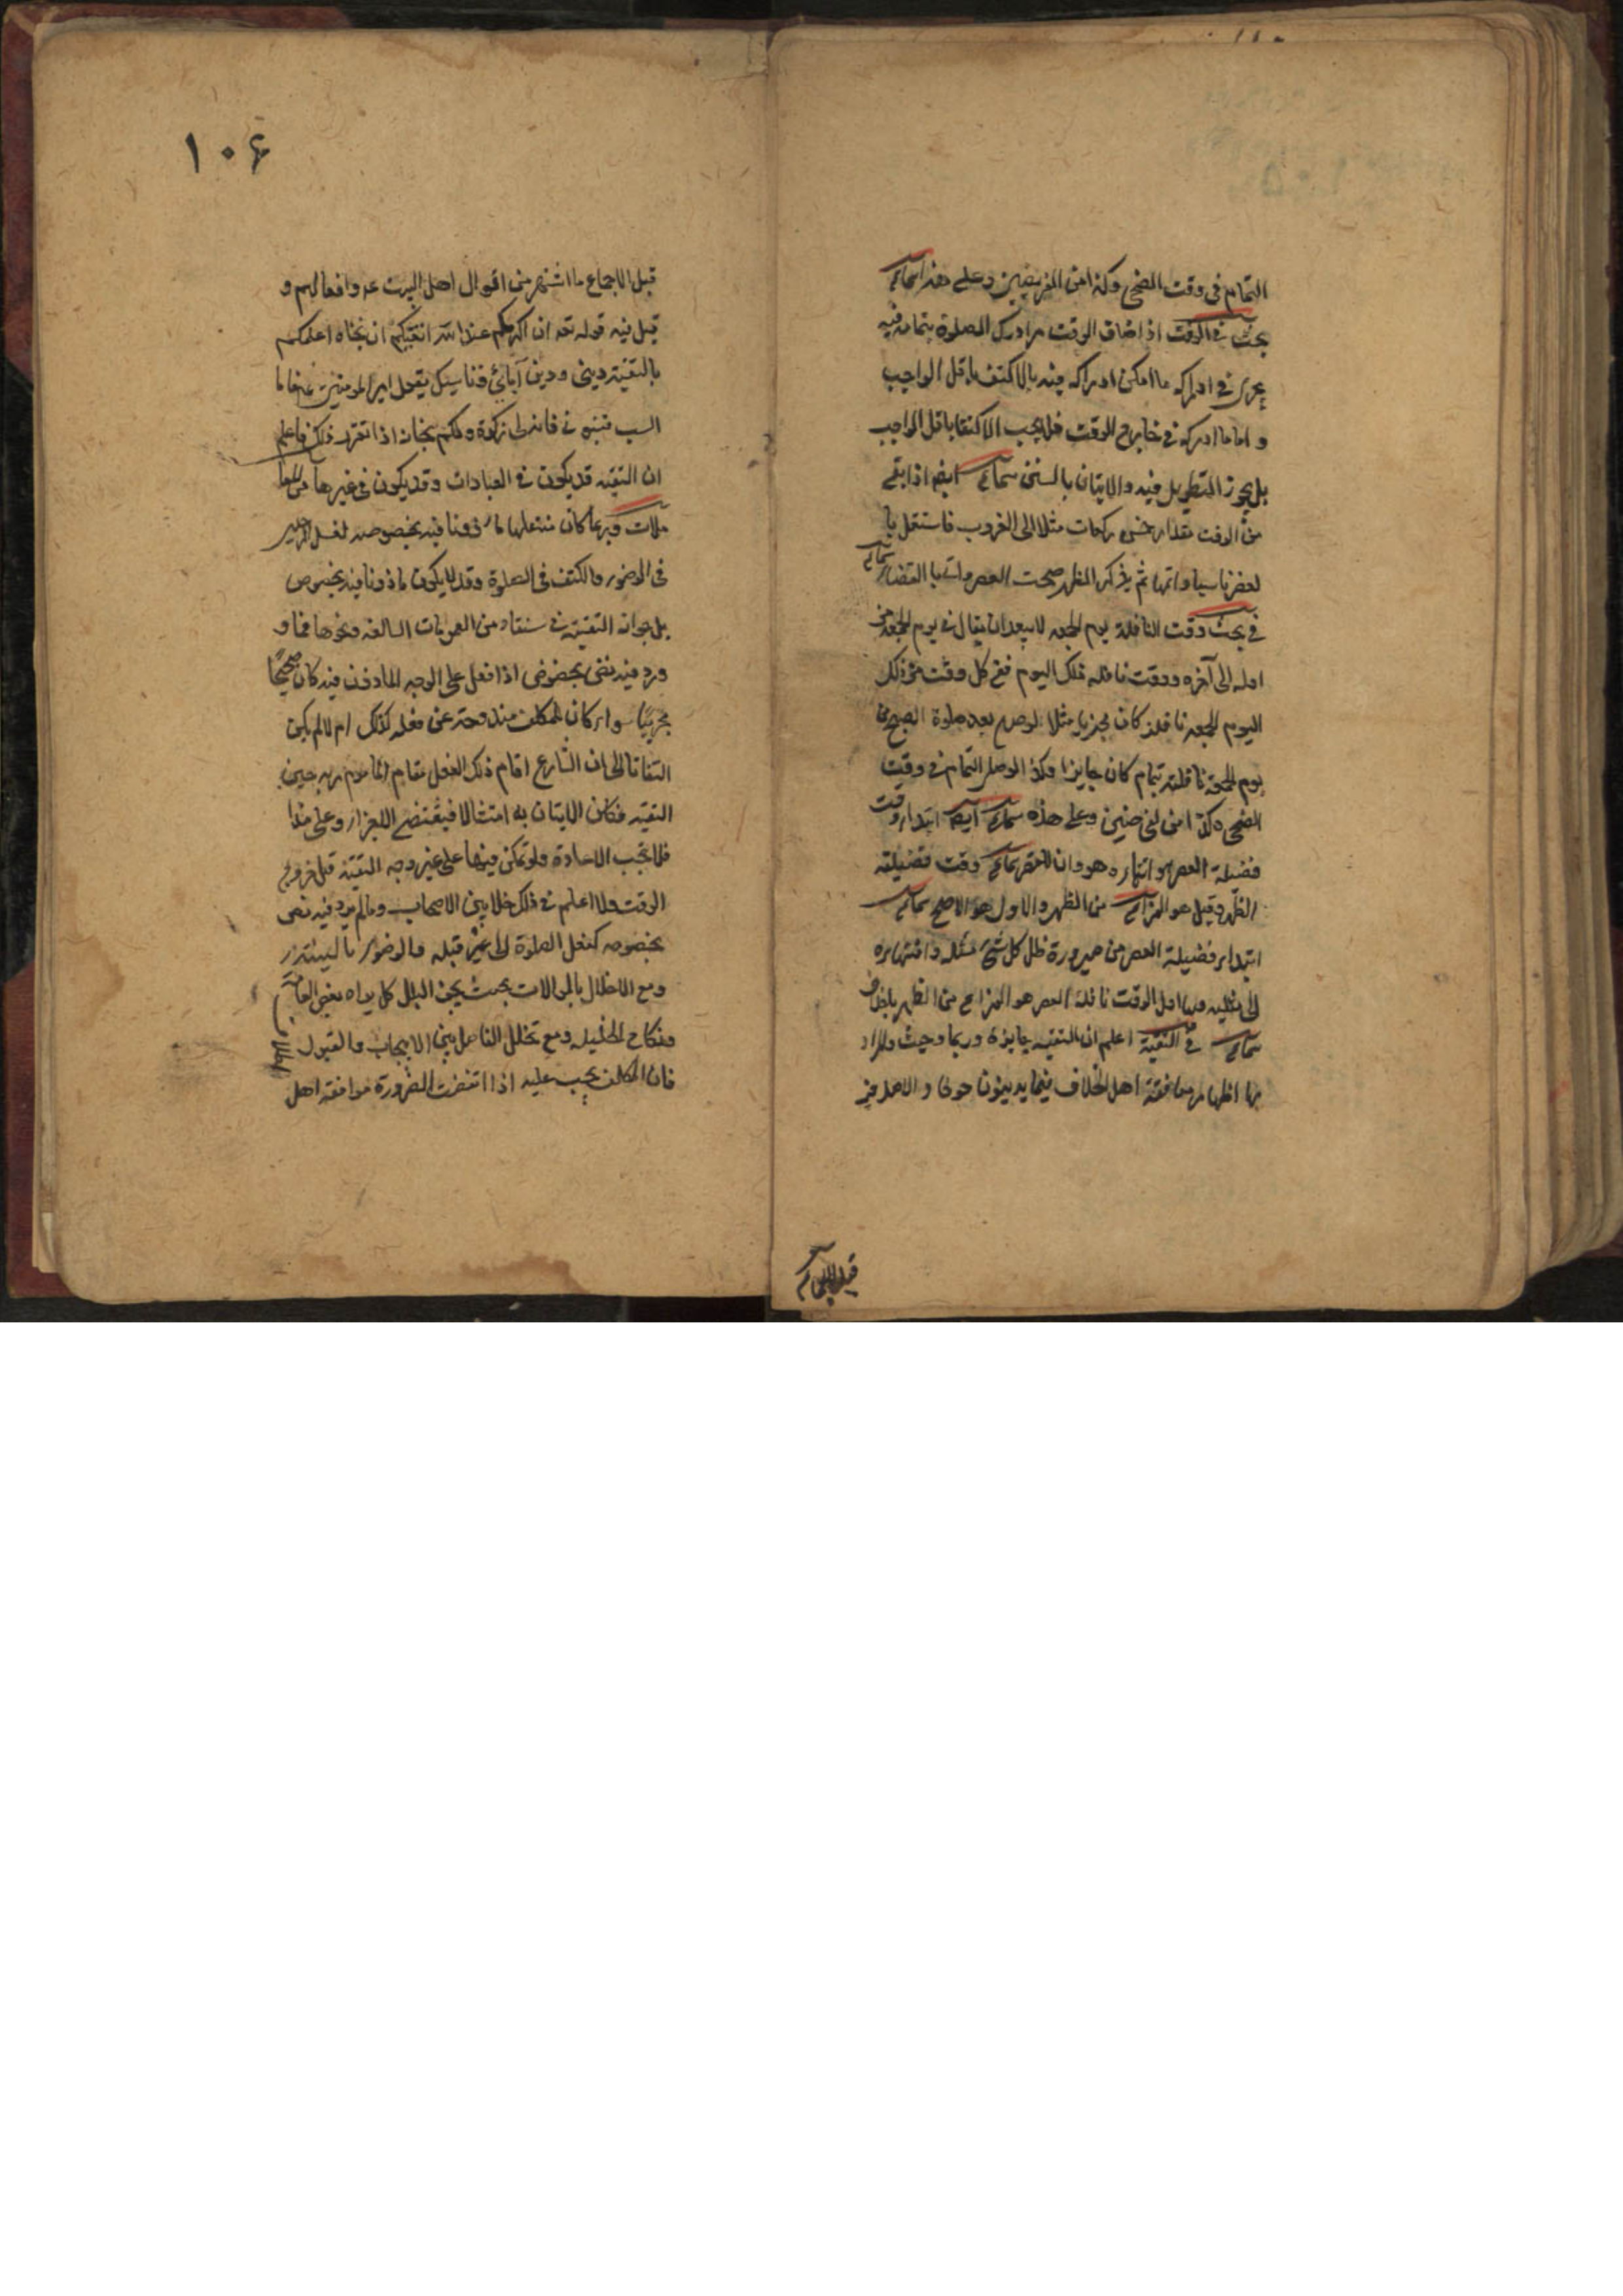 التمام في وقت الضحى وكذا من الفريضين وعلى هذا سماع
بحث في الوقت اذا ضاق الوقت من ادرك الصلوة بتمامه فيه
يجزى في ادراك ما امكن ادراكه فيه بالاكتفا باقل الواجب
و اما ما ادركه في خارج الوقت فلا يجب الاكتفا باقل الواجب
بل يجوز التطويل فيه والاتيان بالسنن سماع ايضا اذا بقى
من الوقت مقدار خمس ركعات مثلا الى الغروب فاشتغل با
لعصر ناسيا واتمها ثم يذكر الظهر صحت العصر واتى با القضاء سماع
في بحث وقت النافلة يوم الجمعه لا يبعد ان يقال في يوم الجمعه من
اوله الى آخره ووقت نافله ذلك اليوم ففى كل وقت من ذلك
اليوم الجمعه نافلة كان مثلا لو صلى بعد صلوة الصبح من
يوم الجمعة نافلته بتمام كان جايزا وكذا لو صلى التمام في وقت
الضحى وعلى هذه سماع ايضا ابتداء وقت
فضيلة العصر هو انتهاء وقت فضيلته
الظهر وقيل هو من الظهر والاول هو الاصح سماع
ابتداء فضيلة العصر من صيرورة ظل كل شئ مثله وانتهاءه
الى مثليه الوقت نافلة العصر هو من الظهر
سماع في التقية اعلم ان التقيه جايزة وربما وجبت والمراد
بها اظهار موافقة اهل الخلاف فيما يدينون خوفا والاصل فيه
قبل الاجماع
١٠۶
قبل الاجماع ما اشتهر من اقوال اهل البيت عه وافعالهم و
قيل فيه قوله تعه ان اكرمكم عند الله اتقيكم ان معناه اعلمكم
بالتقية ديني ودين آبائي يقول امير المومنين اما
السب فسبوني فانه لى زكوة ولكم نجات اذا تقرر ذلك فاعلم
ان التقيه قد يكون في العبادات وقد يكون في غيرها من المعا
ملات وربما كان متعلقها ماذونا فيه بخصوصه لغسل الرجلين
في الوضوء والكتف في الصلوة وقد لا يكون ماذونا فيه بخصوص
بل جواز التقية مستفاد من العمومات السالفه ونحوها فما و
ورد فيه نص بخصوص اذا فعل على الوجه الماذون فيه كان صحيحًا
مجزيًا سواء كان للمكلف مندوحة عن فعله كذلك ام لا لم يكن
التفاتا الى ان الشارع اقام ذلك الفعل مقام المامور به حين
التقيه فكان الاتيان به امتثالا فيقتضى الاجزاء وعلى هذا
فلا تجب الاعادة ولو تمكن منها على غير وجه التقية قبل خروج
الوقت ولا اعلم في ذلك خلافا بين الاصحاب وما لم يرد فيه نص
بخصوصه كفعل الصلوة الى غير قبله والوضوء بالنبيذ
ومع الاخلال بالموالات بحيث يجف البلل كما يراه بعض العامة
ونكاح الحليله ومع تخلل الفاصل بين الايجاب والقبول
فان المكلف يجب عليه اذا اقتضت الضرورة موافقه اهل